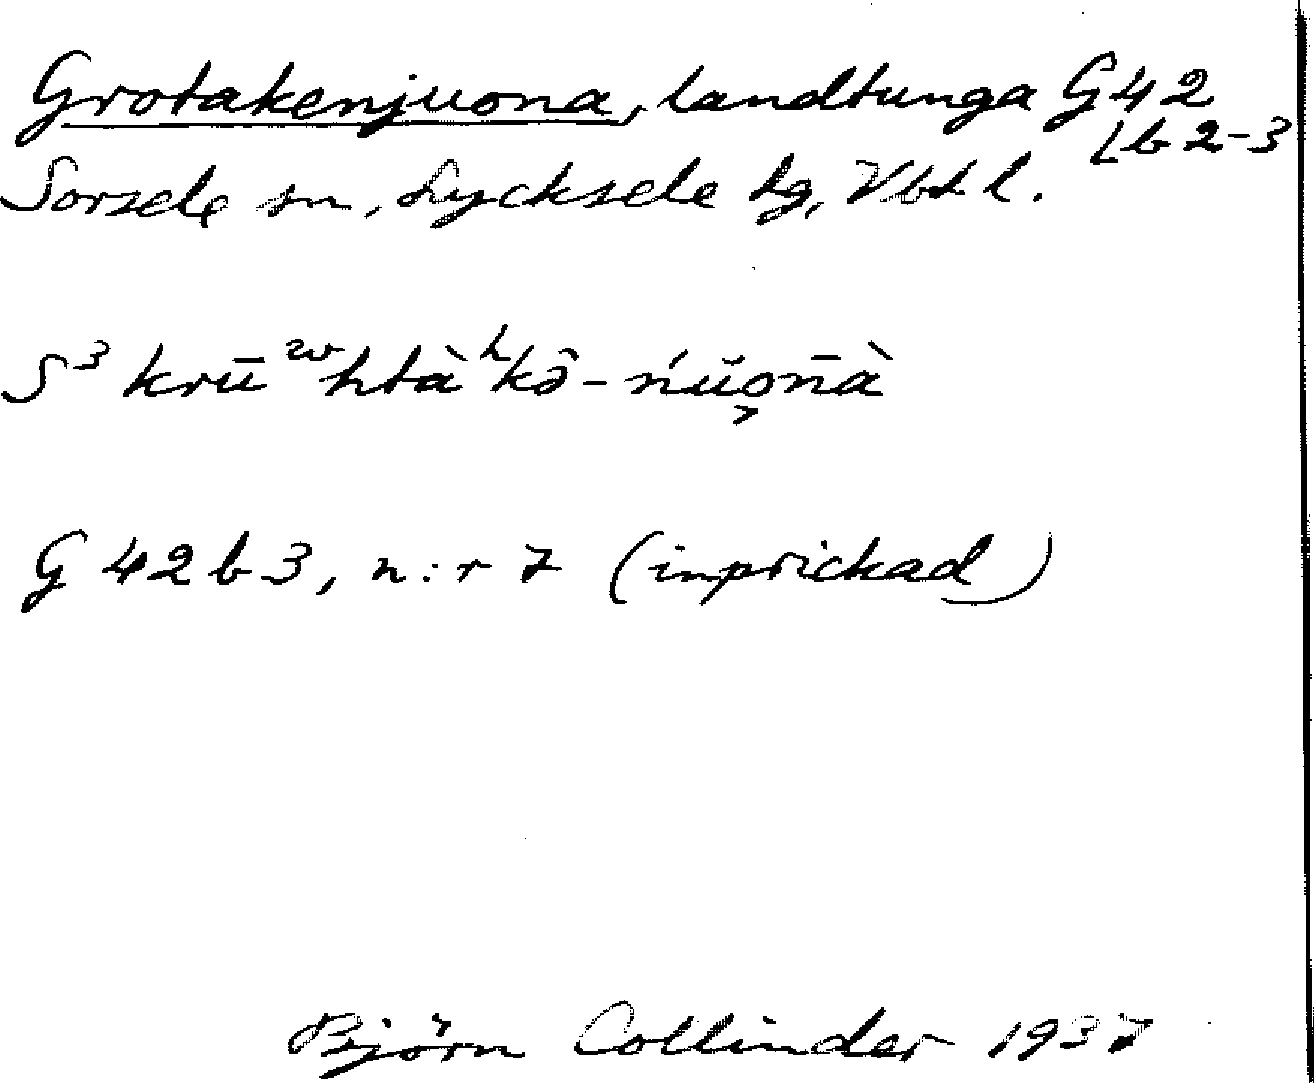 Grotakenjuona, landtunga G 42
⌊b 2-3
Sorsele sn, Lycksele lg, Vbtl.
S³ krūʷhtàʰkə̂-ńŭo̭n̄à
G 42 b 3, n:r 7 (inprickad)
Björn Collinder 1937